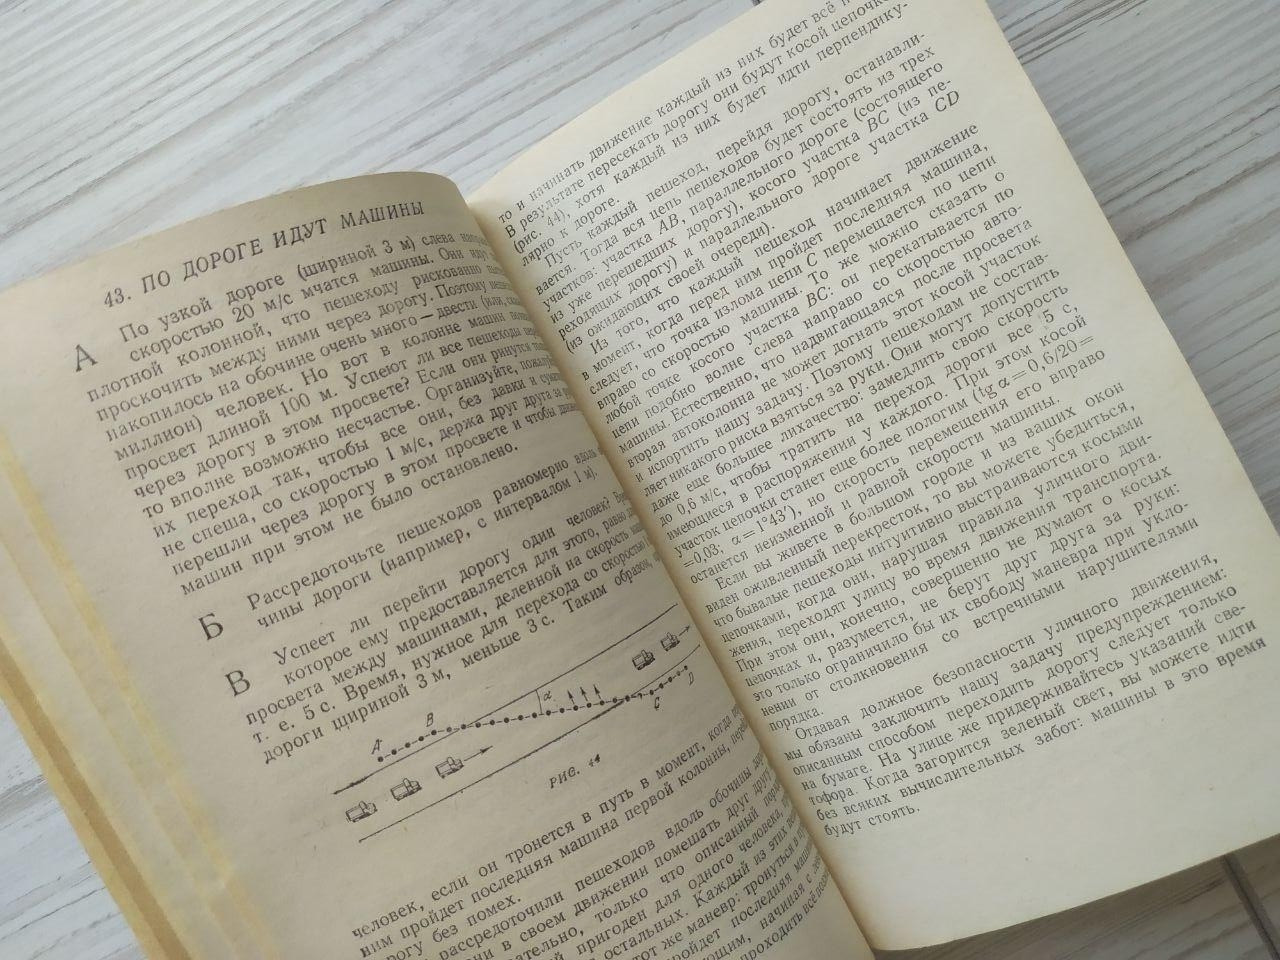 43. ПО ДОРОГЕ ИДУТ МАШИНЫ
А
По узкой дороге (шириной 3 м) слева
скоростью 20 м/с мчатся машины. Они идут
плотной колонной, что пешеходу рискованно
проскочить между ними через дорогу. Поэтому
накопилось на обочине очень много — двести (или,
миллион) человек. Но вот в колонне машин
просвет длиной 100 м. Успеют ли все пешеходы
через дорогу в этом просвете? Если они ринутся
то вполне возможно несчастье. Организуйте,
их переход так, чтобы все они, без давки и
не спеша, со скоростью 1 м/с, держа друг друга за
перешли через дорогу в этом просвете и чтобы
машин при этом не было остановлено.
Б
Рассредоточьте пешеходов равномерно вдоль
чины дороги (например, с интервалом 1 м).
В
Успеет ли перейти дорогу один человек?
которое ему предоставляется для этого, равно
просвета между машинами, деленной на скорость
т. е. 5 с. Время, нужное для перехода со скоростью
дороги шириной 3 м, меньше 3 с. Таким образом,
A B α C D
РИС. 44
человек, если он тронется в путь в момент, когда
ним пройдет последняя машина первой колонны,
рогу без помех.
рассредоточили пешеходов вдоль обочины
они в своем движении помешать друг другу
только что описанный
пригоден для одного человека,
остальных. Каждый из этих
тот же маневр: тронуться в
пройдет последняя
начиная с
проходить всё
то и начинать движение каждый из них будет всё
В результате пересекать дорогу они будут косой цепочкой
(рис. 44), хотя каждый из них будет идти перпендику-
лярно к дороге.
Пусть каждый пешеход, перейдя дорогу, останавли-
вается. Тогда вся цепь пешеходов будет состоять из трех
участков: участка AB, параллельного дороге (состоящего
из уже перешедших дорогу), косого участка BC (из пе-
реходящих дорогу) и параллельного дороге участка CD
(из ожидающих своей очереди).
Из того, что каждый пешеход начинает движение
в момент, когда перед ним пройдет последняя машина,
следует, что точка излома цепи C перемещается по цепи
вправо со скоростью машины. То же можно сказать о
любой точке косого участка BC: он перекатывается по
цепи подобно волне слева направо со скоростью авто-
машины. Естественно, что надвигающаяся после просвета
вторая автоколонна не может догнать этот косой участок
и испортить нашу задачу. Поэтому пешеходам не состав-
ляет никакого риска взяться за руки. Они могут допустить
даже еще большее лихачество: замедлить свою скорость
до 0,6 м/с, чтобы тратить на переход дороги все 5 с,
имеющиеся в распоряжении у каждого. При этом косой
участок цепочки станет еще более пологим (tg α = 0,6/20 =
= 0,03, α = 1°43′), но скорость перемещения его вправо
останется неизменной и равной скорости машины.
Если вы живете в большом городе и из ваших окон
виден оживленный перекресток, то вы можете убедиться,
что бывалые пешеходы интуитивно выстраиваются косыми
цепочками, когда они, нарушая правила уличного дви-
жения, переходят улицу во время движения транспорта.
При этом они, конечно, совершенно не думают о косых
цепочках и, разумеется, не берут друг друга за руки:
это только ограничило бы их свободу маневра при укло-
нении от столкновения со встречными нарушителями
порядка.
Отдавая должное безопасности уличного движения,
мы обязаны заключить нашу задачу предупреждением:
описанным способом переходить дорогу следует только
на бумаге. На улице же придерживайтесь указаний све-
тофора. Когда загорится зеленый свет, вы можете идти
без всяких вычислительных забот: машины в это время
будут стоять.